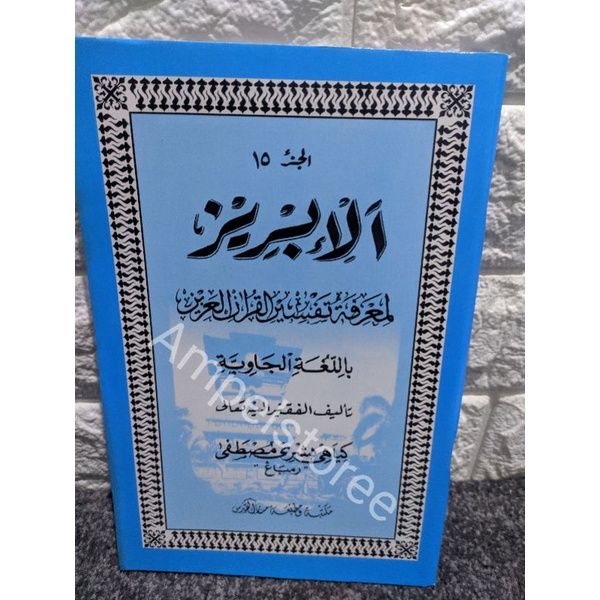 الجزء ١٥
اَلْإِبْرِيْز
لمعرفة تفسير القرآن العزيز
باللغة الجاوية
تأليف الفقير اليه تعالى
كياهي بشري مصطفى
"رمباغ"
مكتبة ومطبعة منارا قدس
Ampelstoree